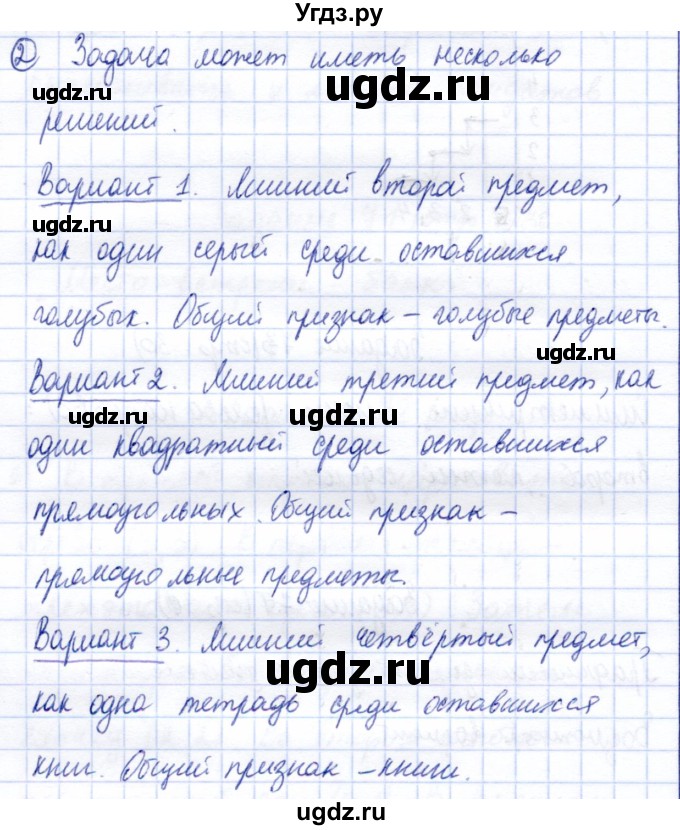 Угдз.ру
② Задача может иметь несколько
ugdz.ru ugdz.ru
решений.
Вариант 1. Лишний второй предмет,
ugdz.ru
как один серый среди оставшихся
ugdz.ru
голубых. Общий признак – голубые предметы.
ugdz.ru
Вариант 2. Лишний третий предмет, как
ugdz.ru ugdz.ru
один квадратный среди оставшихся
прямоугольных. Общий признак –
ugdz.ru
прямоугольные предметы.
ugdz.ru
Вариант 3. Лишний четвёртый предмет,
ugdz.ru
как одна тетрадь среди оставшихся
ugdz.ru
книг. Общий признак – книги.
ugdz.ru
ugdz.ru